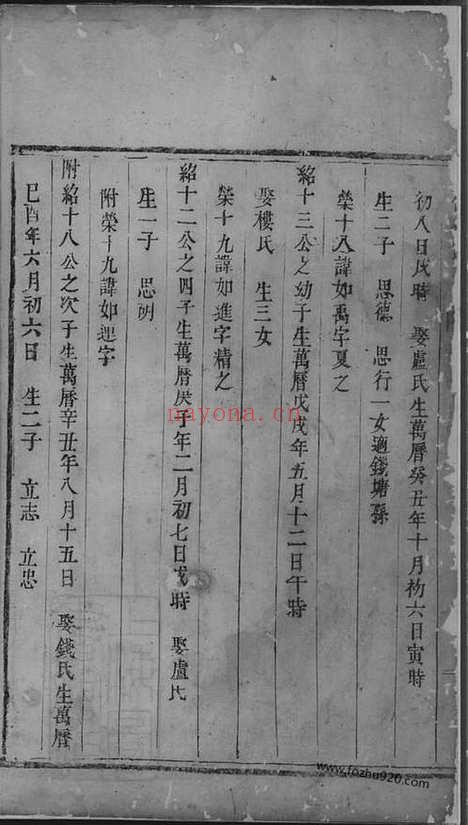 初八日戌時 娶盧氏生萬曆癸丑年十月初六日寅時
生二子 思德 思行一女適錢塘孫
榮十八諱如禹字夏之
紹十三公之幼子生萬曆戊戌年五月十二日午時
娶樓氏 生三女
榮十九諱如進字精之
紹十二公之四子生萬曆庚子年二月初七日戌時 娶盧氏
生一子 思明
附榮十九諱如理字
附紹十八公之次子生萬曆辛丑年八月十五日 娶錢氏生萬曆
己酉年六月初六日 生二子 立志 立忠
nayona.cn
www.fozhu920.com